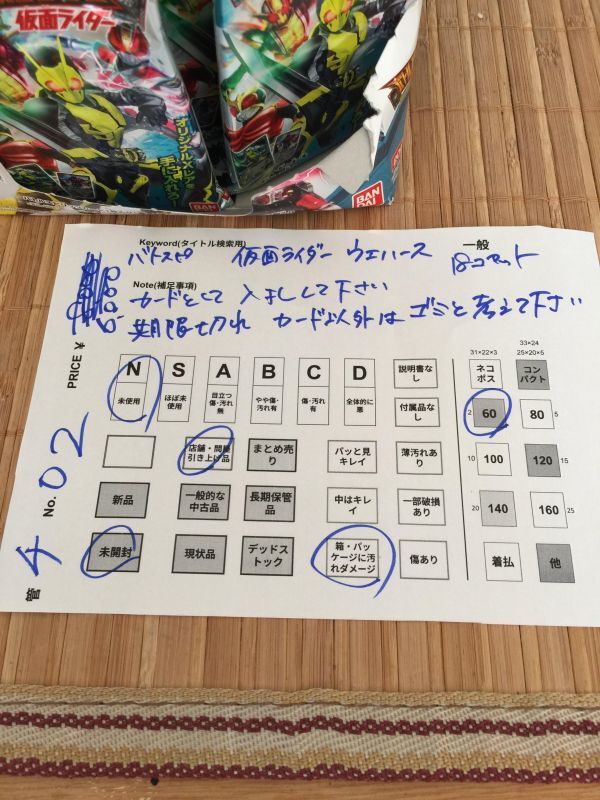 仮面ライダー
オリジナルXレアを
手に入れろ!
BANDAI
BAN
DAI
Keyword(タイトル検索用)
一般
バトスピ 仮面ライダー ウエハース 18コセット
Note(補足事項)
カードとして 入手して下さい
期限切れ カード以外は ゴミと考えて下さい
PRICE ¥
No. 02
管 4
N S A B C D 説明書なし
未使用
ほぼ未使用
目立つ傷・汚れ無
やや傷・汚れ有
傷・汚れ有
全体的に悪
付属品なし
店舗・問屋引き上げ品
まとめ売り
パッと見キレイ
薄汚れあり
新品
一般的な中古品
長期保管品
中はキレイ
一部破損あり
未開封
現状品
デッドストック
箱・パッケージに汚れダメージ
傷あり
31×22×3
33×24
25×20×5
ネコポス
コンパクト
2 60 80 5
10 100 120 15
20 140 160 25
着払 他